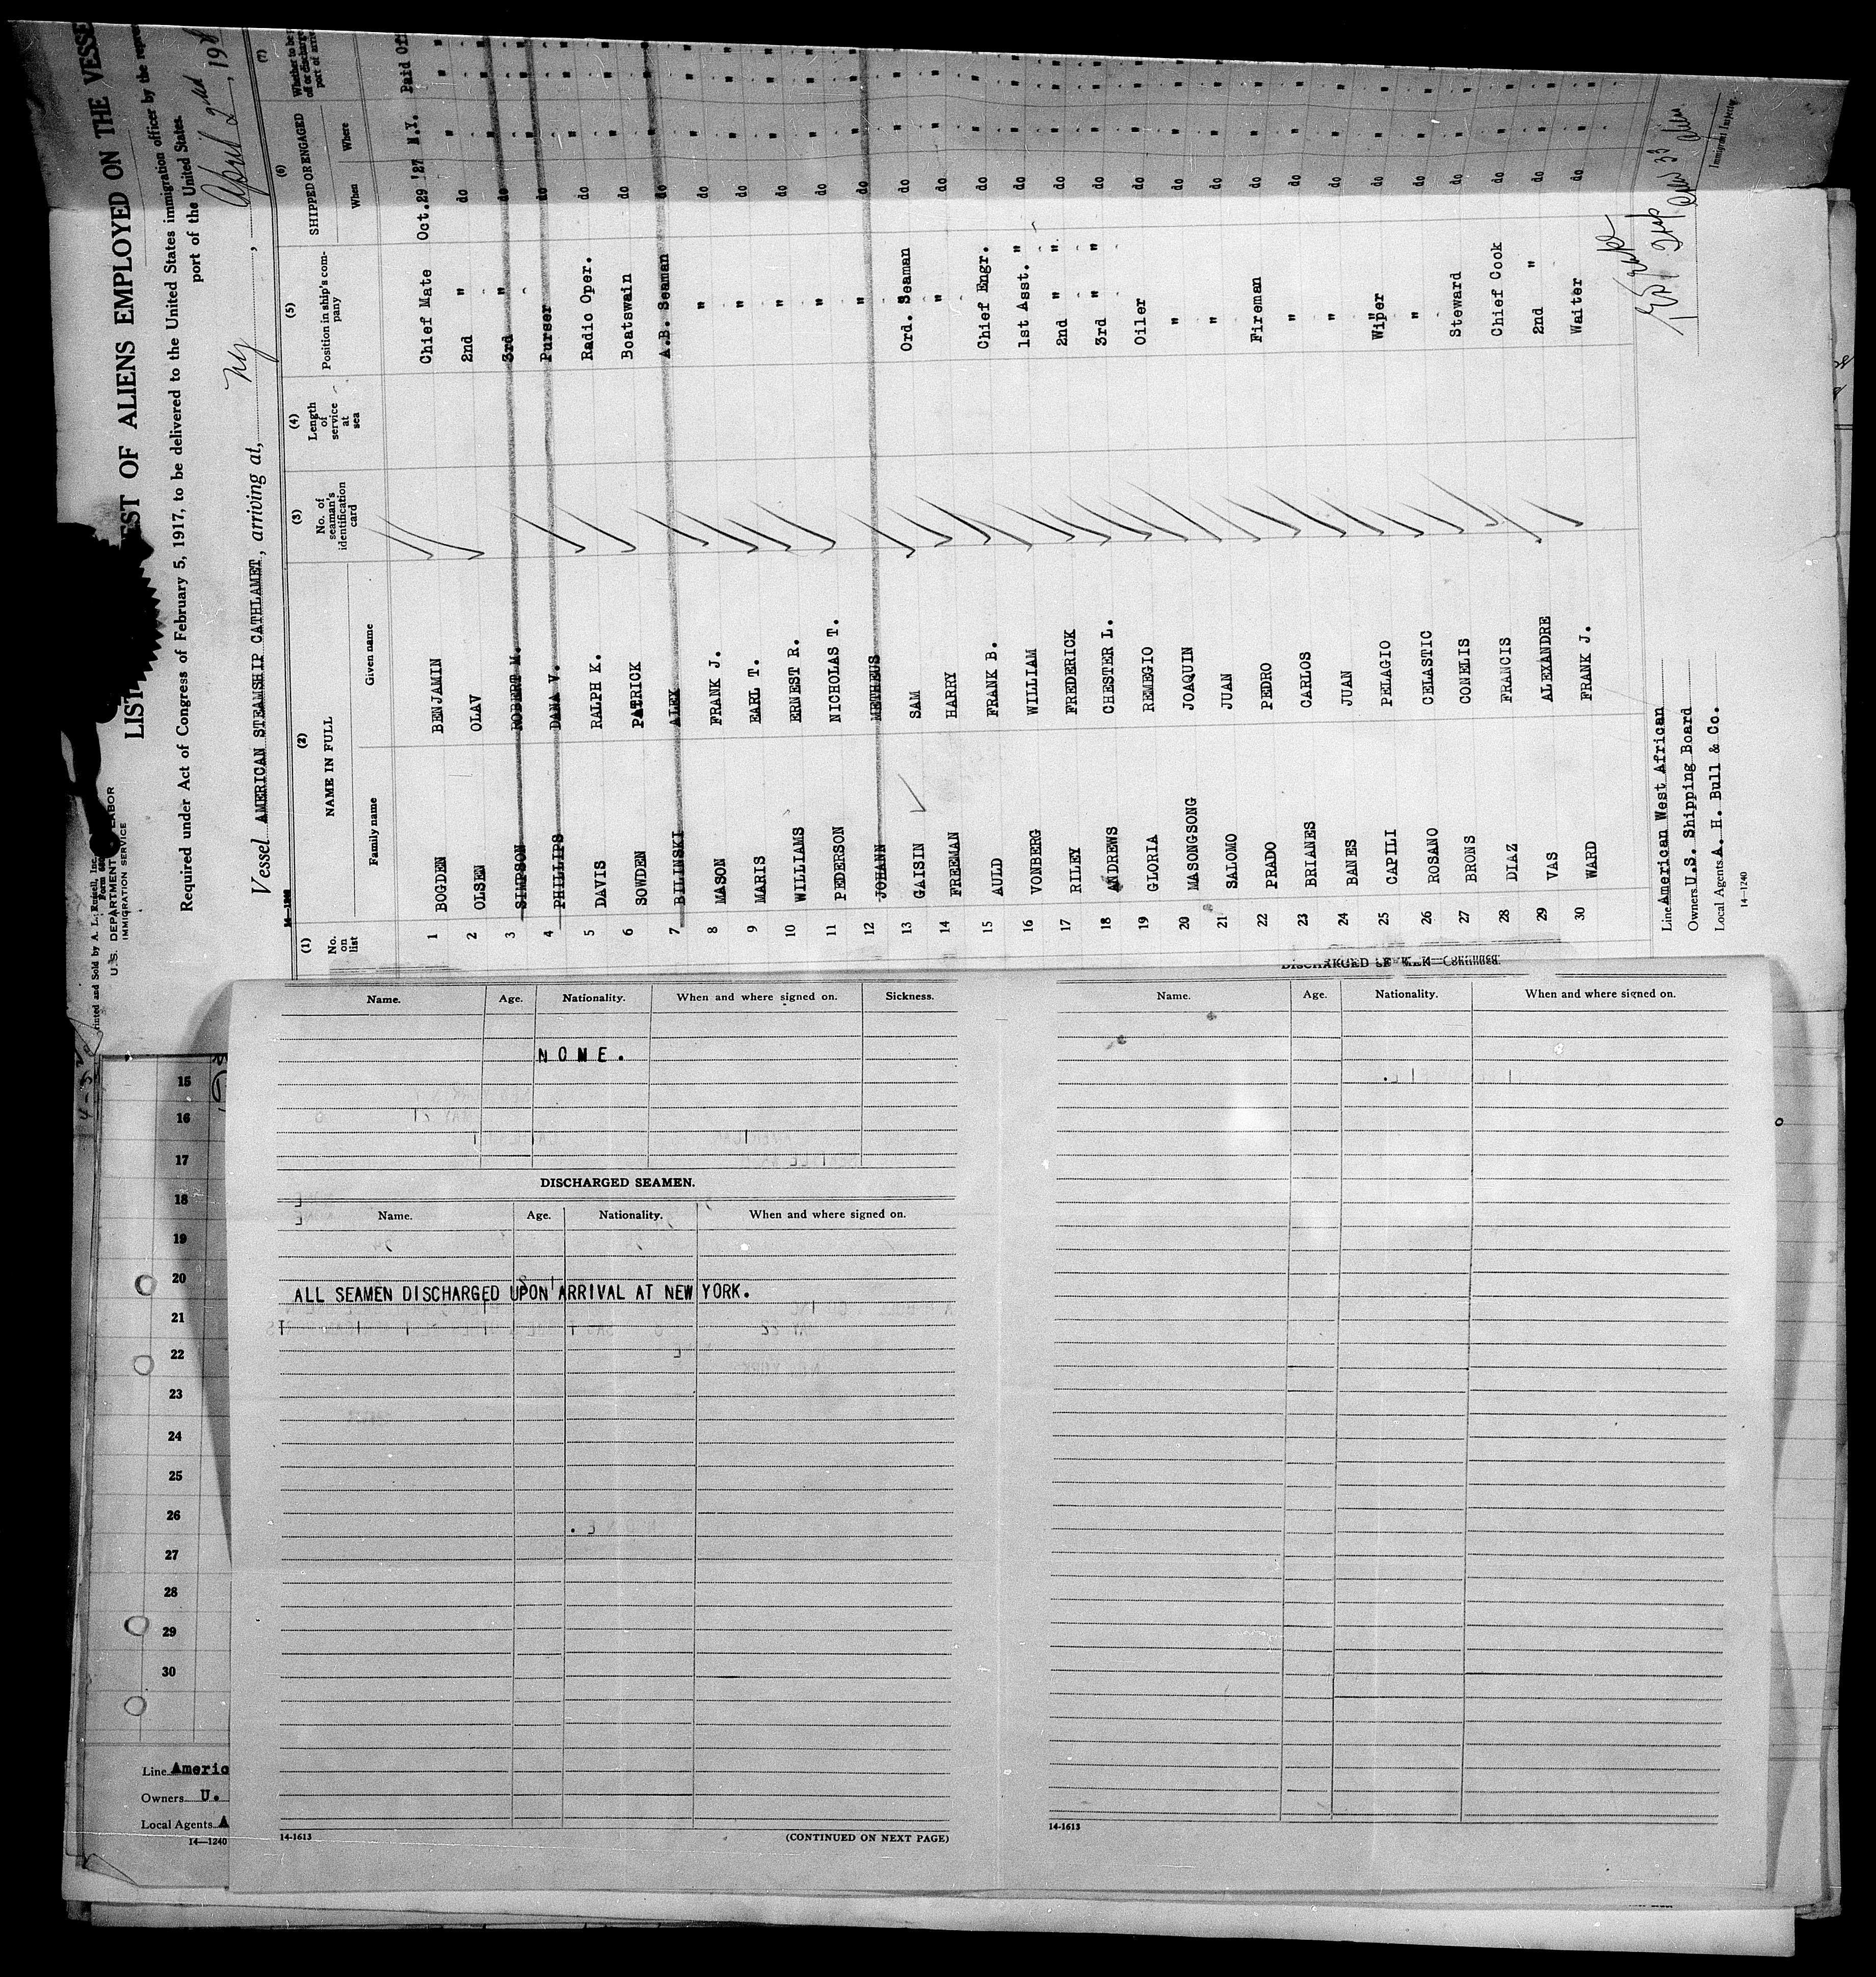 Printed and Sold by A. L. Russell, Inc.
U.S. DEPARTMENT OF LABOR
IMMIGRATION SERVICE
LIST OF ALIENS EMPLOYED ON THE VESSE
Required under Act of Congress of February 5, 1917, to be delivered to the United States immigration officer by the repre
port of the United States.
Vessel AMERICAN STEAMSHIP CATHLAMET, arriving at, NY, April 2nd, 192
(1) No. on list (2) NAME IN FULL Family name Given name (3) No. of seaman's identification card (4) Length of service at sea (5) Position in ship's company (6) SHIPPED OR ENGAGED When Where (7)
1 BOGDEN BENJAMIN Chief Mate Oct.29 '27 N.Y. Paid Of
2 OLSEN OLAV 2nd " do "
3 SIMPSON ROBERT M. 3rd " do "
4 PHILLIPS DANA V. Purser
5 DAVIS RALPH K. Radio Oper. do "
6 SOWDEN PATRICK Boatswain do "
7 BILINSKI ALEX A.B. Seaman do "
8 MASON FRANK J. " do "
9 MARIS EARL T. " do "
10 WILLIAMS ERNEST R. " do "
11 PEDERSON NICHOLAS T. " do "
12 JOHANN METHEUS " do "
13 GAISIN SAM Ord. Seaman do "
14 FREEMAN HARRY " do "
15 AULD FRANK B. Chief Engr. do "
16 VONBERG WILLIAM 1st Asst. " do "
17 RILEY FREDERICK 2nd " " do "
18 ANDREWS CHESTER L. 3rd " " do "
19 GLORIA REMEGIO Oiler do "
20 MASONGSONG JOAQUIN " do "
21 SALOMO JUAN " do "
22 PRADO PEDRO Fireman do "
23 BRIANES CARLOS " do "
24 BANES JUAN " do "
25 CAPILI PELAGIO Wiper do "
26 ROSANO CELASTIC " do "
27 BRONS CONELIS Steward do "
28 DIAZ FRANCIS Chief Cook do "
29 VAS ALEXANDRE 2nd " do "
30 WARD FRANK J. Waiter do "
Line American West African
Owners U.S. Shipping Board
Local Agents A. H. Bull & Co.
14-1240
Immigrant Inspector
Name. Age. Nationality. When and where signed on. Sickness.
NONE.
DISCHARGED SEAMEN.
Name. Age. Nationality. When and where signed on.
ALL SEAMEN DISCHARGED UPON ARRIVAL AT NEW YORK.
14-1613
(CONTINUED ON NEXT PAGE)
DISCHARGED SEAMEN—Continued.
Name. Age. Nationality. When and where signed on.
14-1613
15
16
17
18
19
20
21
22
23
24
25
26
27
28
29
30
Line Americ
Owners U.
Local Agents A
14—1240